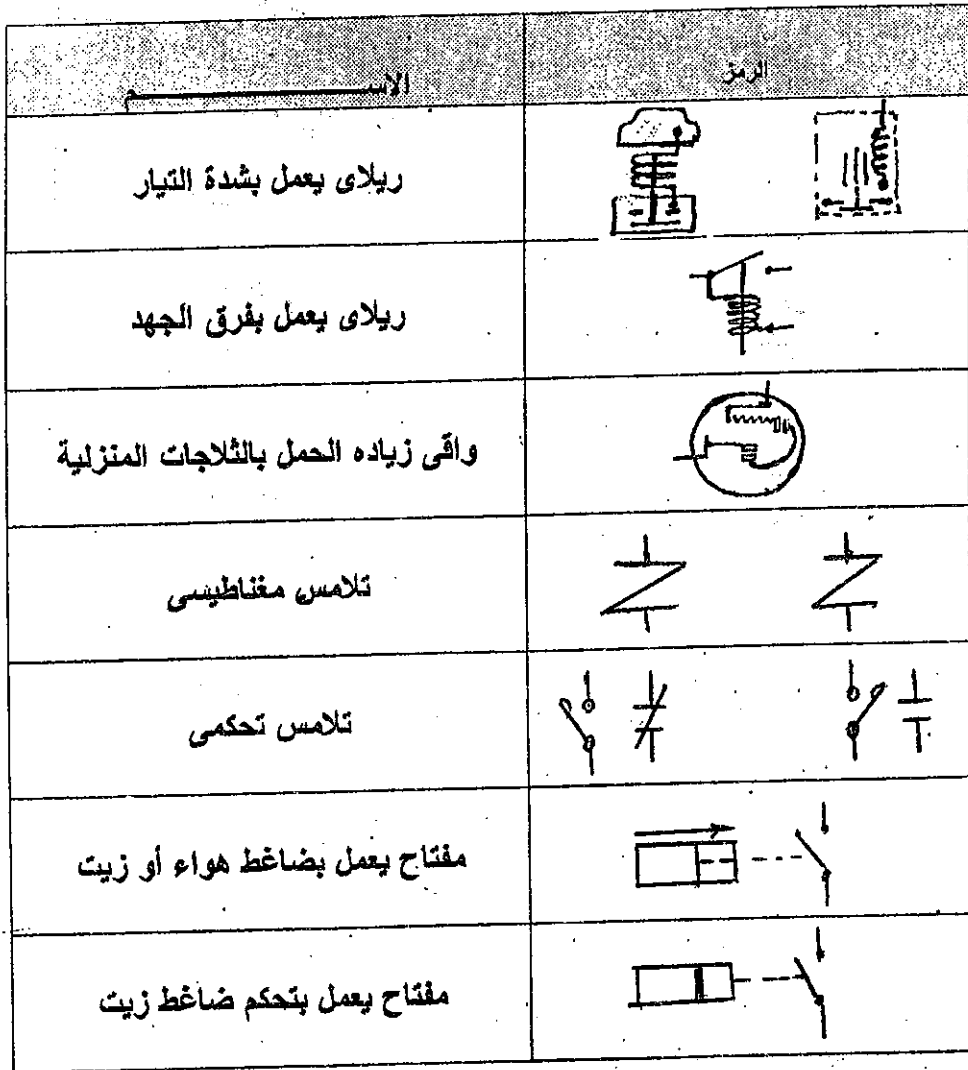 الرمز
الاســـــــم
ريلاى يعمل بشدة التيار
ريلاى يعمل بفرق الجهد
واقى زياده الحمل بالثلاجات المنزلية
تلامس مغناطيسى
تلامس تحكمى
مفتاح يعمل بضاغط هواء أو زيت
مفتاح يعمل بتحكم ضاغط زيت